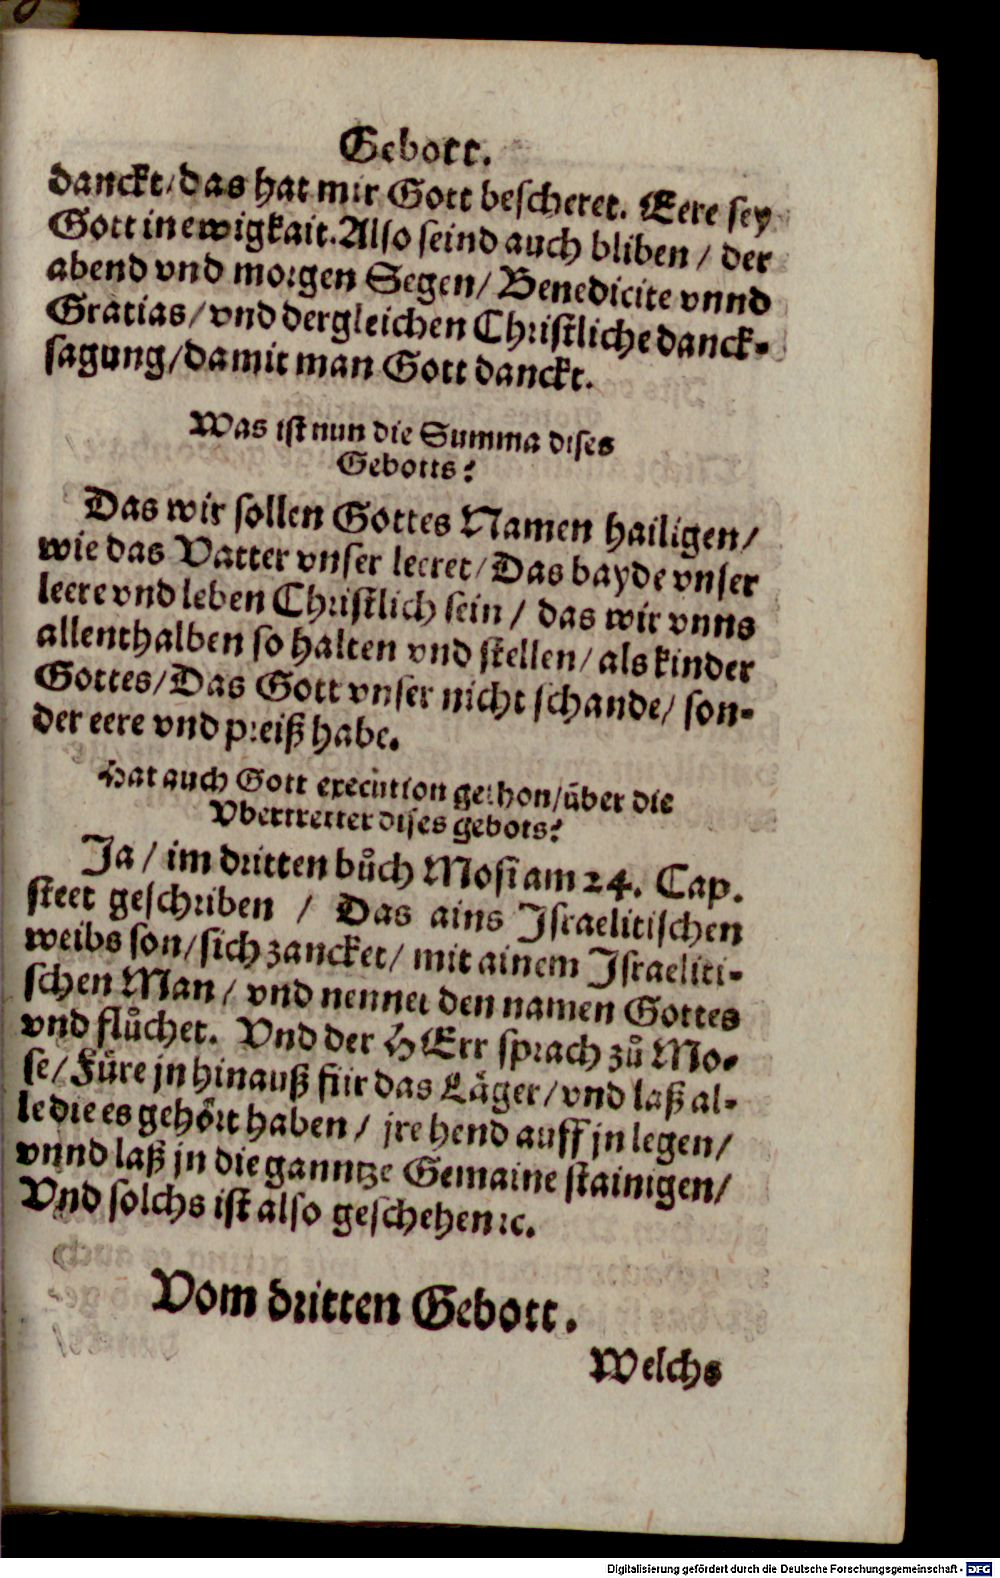 Gebott.
danckt/das hat mir Gott bescheret. Eere sey
Gott in ewigkait. Also seind auch bliben / der
abend vnd morgen Segen/ Benedicite vnnd
Gratias/vnd dergleichen Christliche danck-
sagung/damit man Gott danckt.
Was ist nun die Summa dises
Gebotts?
Das wir sollen Gottes Namen hailigen/
wie das Vatter vnser leeret/Das bayde vnser
leere vnd leben Christlich sein / das wir vnns
allenthalben so halten vnd stellen/ als kinder
Gottes/Das Gott vnser nicht schande/ son-
der eere vnd preiß habe.
Hat auch Gott execution gethon/über die
Vbertretter dises gebots?
Ja / im dritten bůch Mosi am 24. Cap.
steet geschriben / Das ains Israelitischen
weibs son/sich zancket/ mit ainem Israeliti-
schen Man / vnd nennet den namen Gottes
vnd flůchet. Vnd der HErr sprach zů Mo-
se/Füre jn hinauß für das Läger/vnd laß al-
le die es gehört haben / jre hend auff jn legen/
vnnd laß jn die ganntze Gemaine stainigen/
Vnd solchs ist also geschehen ꝛc.
Vom dritten Gebott.
Welchs
Digitalisierung gefördert durch die Deutsche Forschungsgemeinschaft - DFG